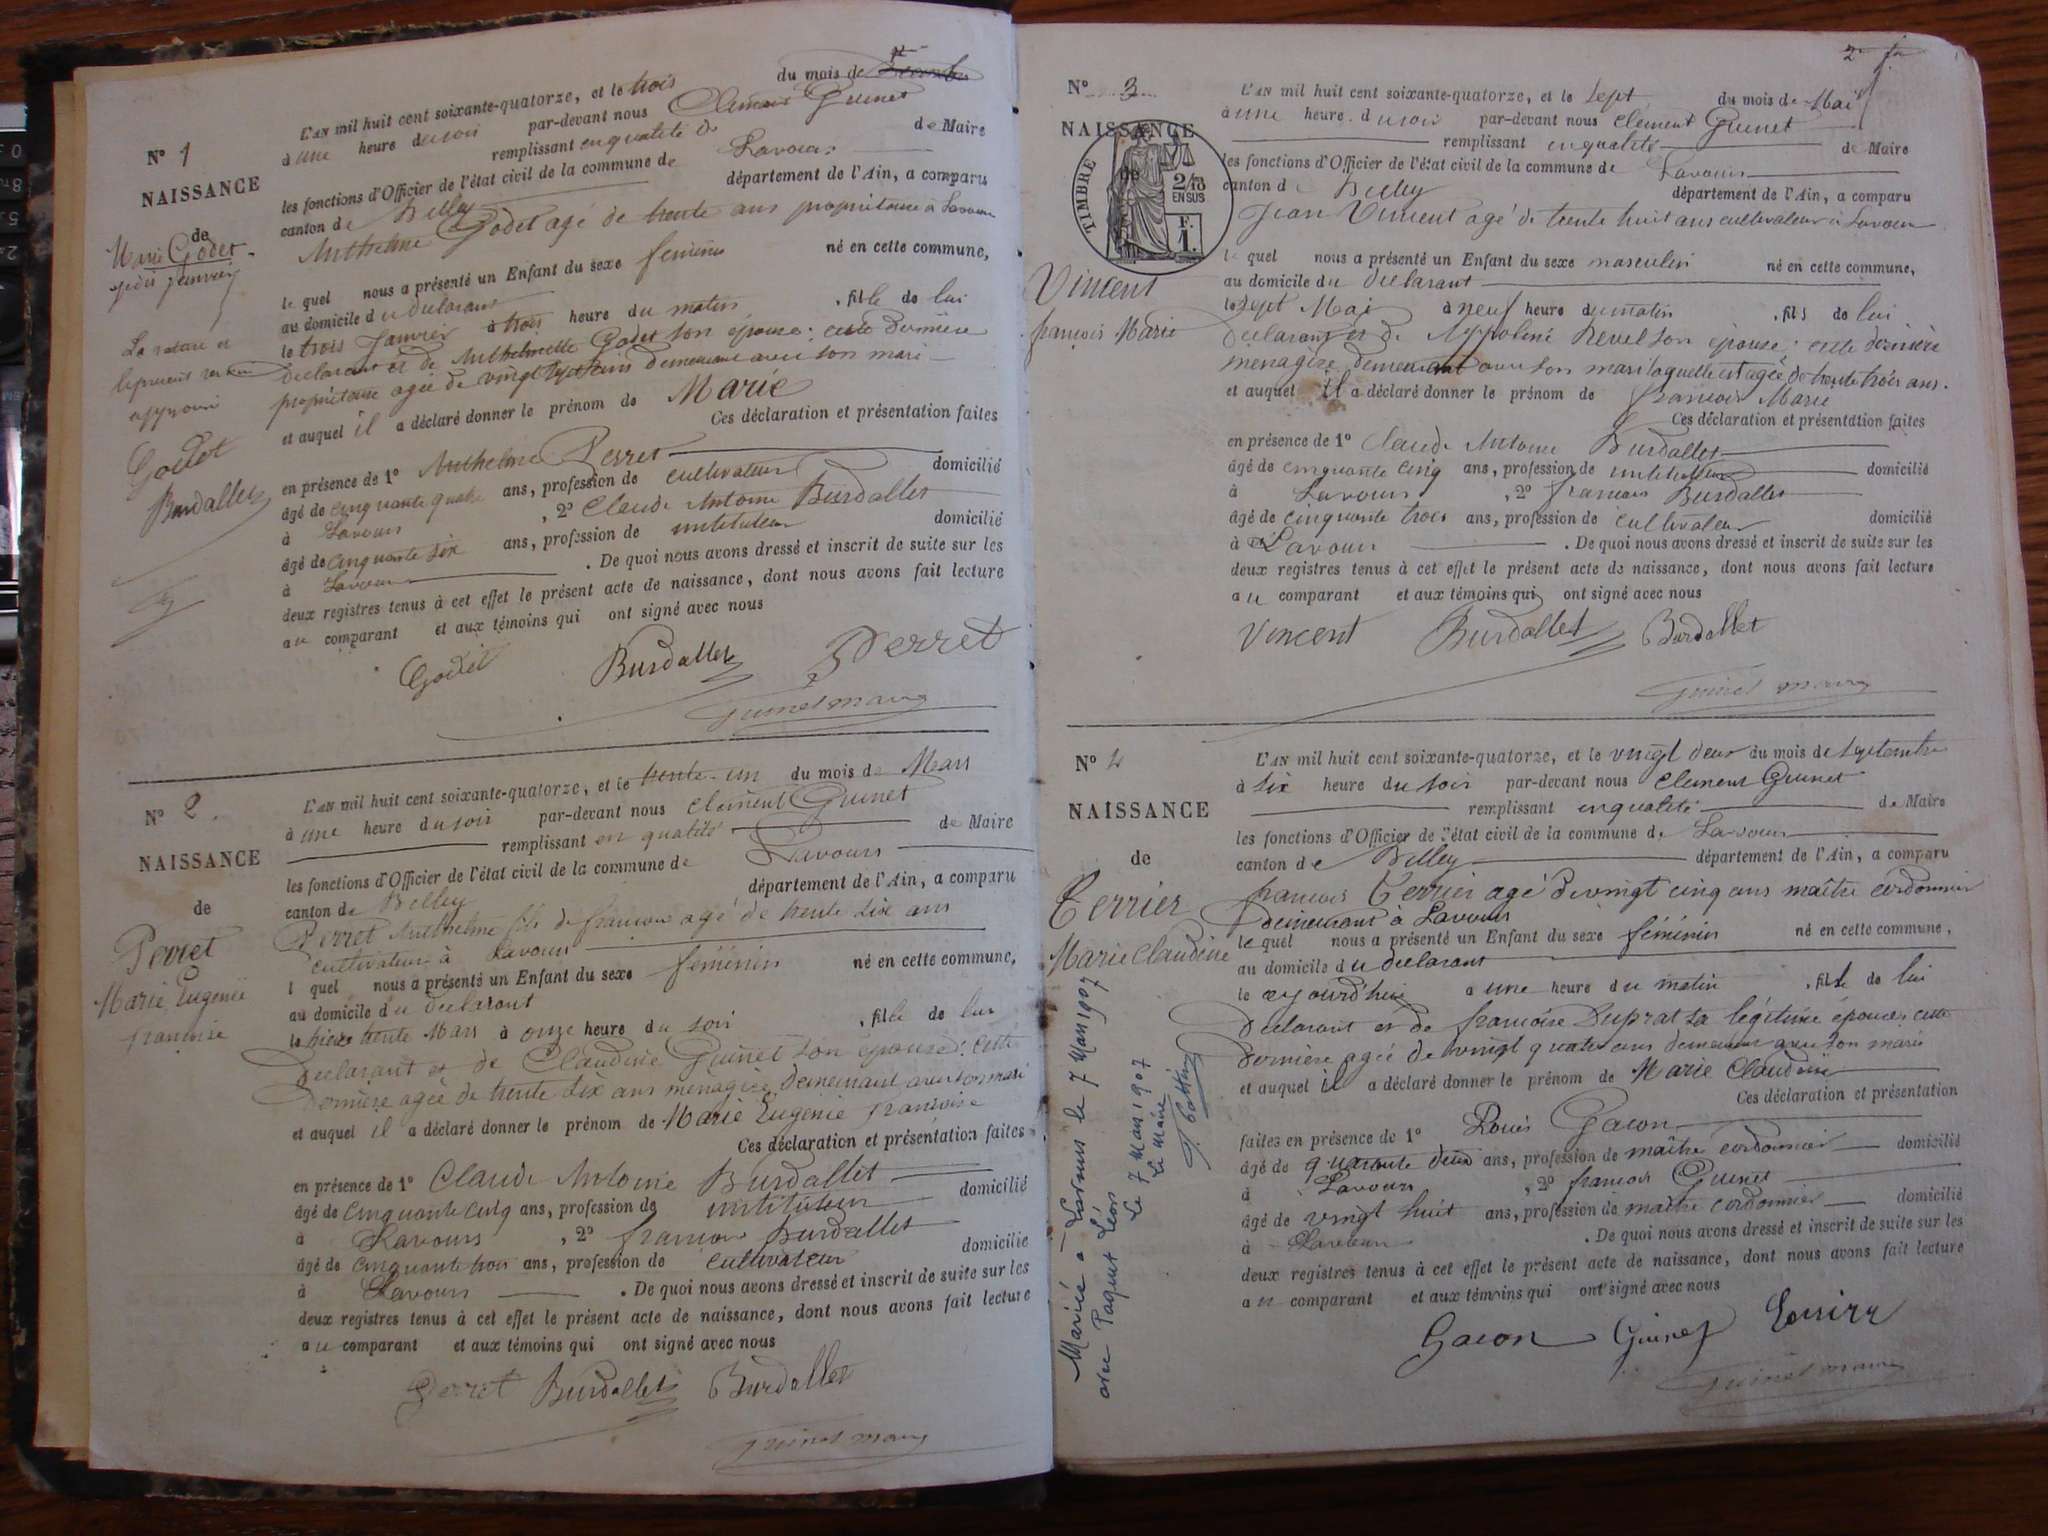 N° 1
NAISSANCE
de
Marie Godet
La rature et
approuvé
Godet
Burdallet
L'AN mil huit cent soixante-quatorze, et le trois du mois de
à une heure du soir par-devant nous Clément Guinet
remplissant en qualité de de Maire
les fonctions d'Officier de l'état civil de la commune de Lavours
canton de Belley département de l'Ain, a comparu
Anthelme Godet agé de trente ans propriétaire à Lavours
le quel nous a présenté un Enfant du sexe féminin né en cette commune,
au domicile du déclarant
le trois Janvier à trois heure du matin , fille de lui
déclarant et de Godet son épouse ; cette dernière
propriétaire agée de vingt demeurant avec son mari
et auquel il a déclaré donner le prénom de Marie
Ces déclaration et présentation faites
en présence de 1° Anthelme Perret
âgé de cinquante quatre ans, profession de cultivateur domicilié
à Lavours , 2° Claude Antoine Burdallet
âgé de cinquante six ans, profession de instituteur domicilié
à Lavours . De quoi nous avons dressé et inscrit de suite sur les
deux registres tenus à cet effet le présent acte de naissance, dont nous avons fait lecture
au comparant et aux témoins qui ont signé avec nous
Godet Burdallet Perret
Guinet maire
N° 2.
NAISSANCE
de
Perret
Marie Eugenie
françoise
L'AN mil huit cent soixante-quatorze, et le trente-un du mois de Mars
à une heure du soir par-devant nous Clément Guinet
remplissant en qualité de Maire
les fonctions d'Officier de l'état civil de la commune de Lavours
canton de Belley département de l'Ain, a comparu
Perret Anthelme fils de françois agé de trente six ans
cultivateur à Lavours
l quel nous a présenté un Enfant du sexe féminin né en cette commune,
au domicile du déclarant
le hier trente Mars à onze heure du soir , fille de lui
déclarant et de Claudine Guinet son épouse ; cette
dernière agée de trente six ans menagère demeurant avec son mari
et auquel il a déclaré donner le prénom de Marie Eugenie françoise
Ces déclaration et présentation faites
en présence de 1° Claude Antoine Burdallet
âgé de cinquante cinq ans, profession de instituteur domicilié
à Lavours , 2° françois Burdallet
âgé de cinquante trois ans, profession de cultivateur domicilié
à Lavours . De quoi nous avons dressé et inscrit de suite sur les
deux registres tenus à cet effet le présent acte de naissance, dont nous avons fait lecture
au comparant et aux témoins qui ont signé avec nous
Perret Burdallet Burdallet
Guinet maire
N° 3
NAISSANCE
TIMBRE
2/10
EN SUS
F.
1.
Vincent
françois Marie
L'AN mil huit cent soixante-quatorze, et le sept du mois de Mai
à une heure du soir par-devant nous Clément Guinet
remplissant en qualité de Maire
les fonctions d'Officier de l'état civil de la commune de Lavours
canton de Belley département de l'Ain, a comparu
Jean Vincent agé de trente huit ans cultivateur à Lavours
le quel nous a présenté un Enfant du sexe masculin né en cette commune,
au domicile du déclarant
le sept Mai à neuf heure du matin , fils de lui
déclarant et de Revel son épouse ; cette dernière
menagère demeurant avec son mari laquelle est agée de trente trois ans.
et auquel il a déclaré donner le prénom de françois Marie
Ces déclaration et présentation faites
en présence de 1° Claude Antoine Burdallet
âgé de cinquante cinq ans, profession de instituteur domicilié
à Lavours , 2° françois Burdallet
âgé de cinquante trois ans, profession de cultivateur domicilié
à Lavours . De quoi nous avons dressé et inscrit de suite sur les
deux registres tenus à cet effet le présent acte de naissance, dont nous avons fait lecture
au comparant et aux témoins qui ont signé avec nous
Vincent Burdallet Burdallet
Guinet maire
N° 4
NAISSANCE
de
Terrier
Marie Claudine
Mariée à Lavours le 7 Mars 1907
avec Paquet Léon
Le 7 Mars 1907
Le Maire
L'AN mil huit cent soixante-quatorze, et le vingt deux du mois de septembre
à six heure du soir par-devant nous Clement Guinet
remplissant en qualité de Maire
les fonctions d'Officier de l'état civil de la commune de Lavours
canton de Belley département de l'Ain, a comparu
françois Terrier agé de vingt cinq ans maître cordonnier
demeurant à Lavours
le quel nous a présenté un Enfant du sexe féminin né en cette commune,
au domicile du déclarant
le aujourd'hui a une heure du matin , fille de lui
déclarant et de françoise Duprat sa légitime épouse cette
dernière agée de vingt quatre ans demeurant avec son mari
et auquel il a déclaré donner le prénom de Marie Claudine
Ces déclaration et présentation
faites en présence de 1° Louis Gacon
âgé de quarante deux ans, profession de maître cordonnier domicilié
à Lavours , 2° françois Guinet
âgé de vingt huit ans, profession de maître cordonnier domicilié
à Lavours . De quoi nous avons dressé et inscrit de suite sur les
deux registres tenus à cet effet le présent acte de naissance, dont nous avons fait lecture
au comparant et aux témoins qui ont signé avec nous
Gacon Guinet Terrier
Guinet maire